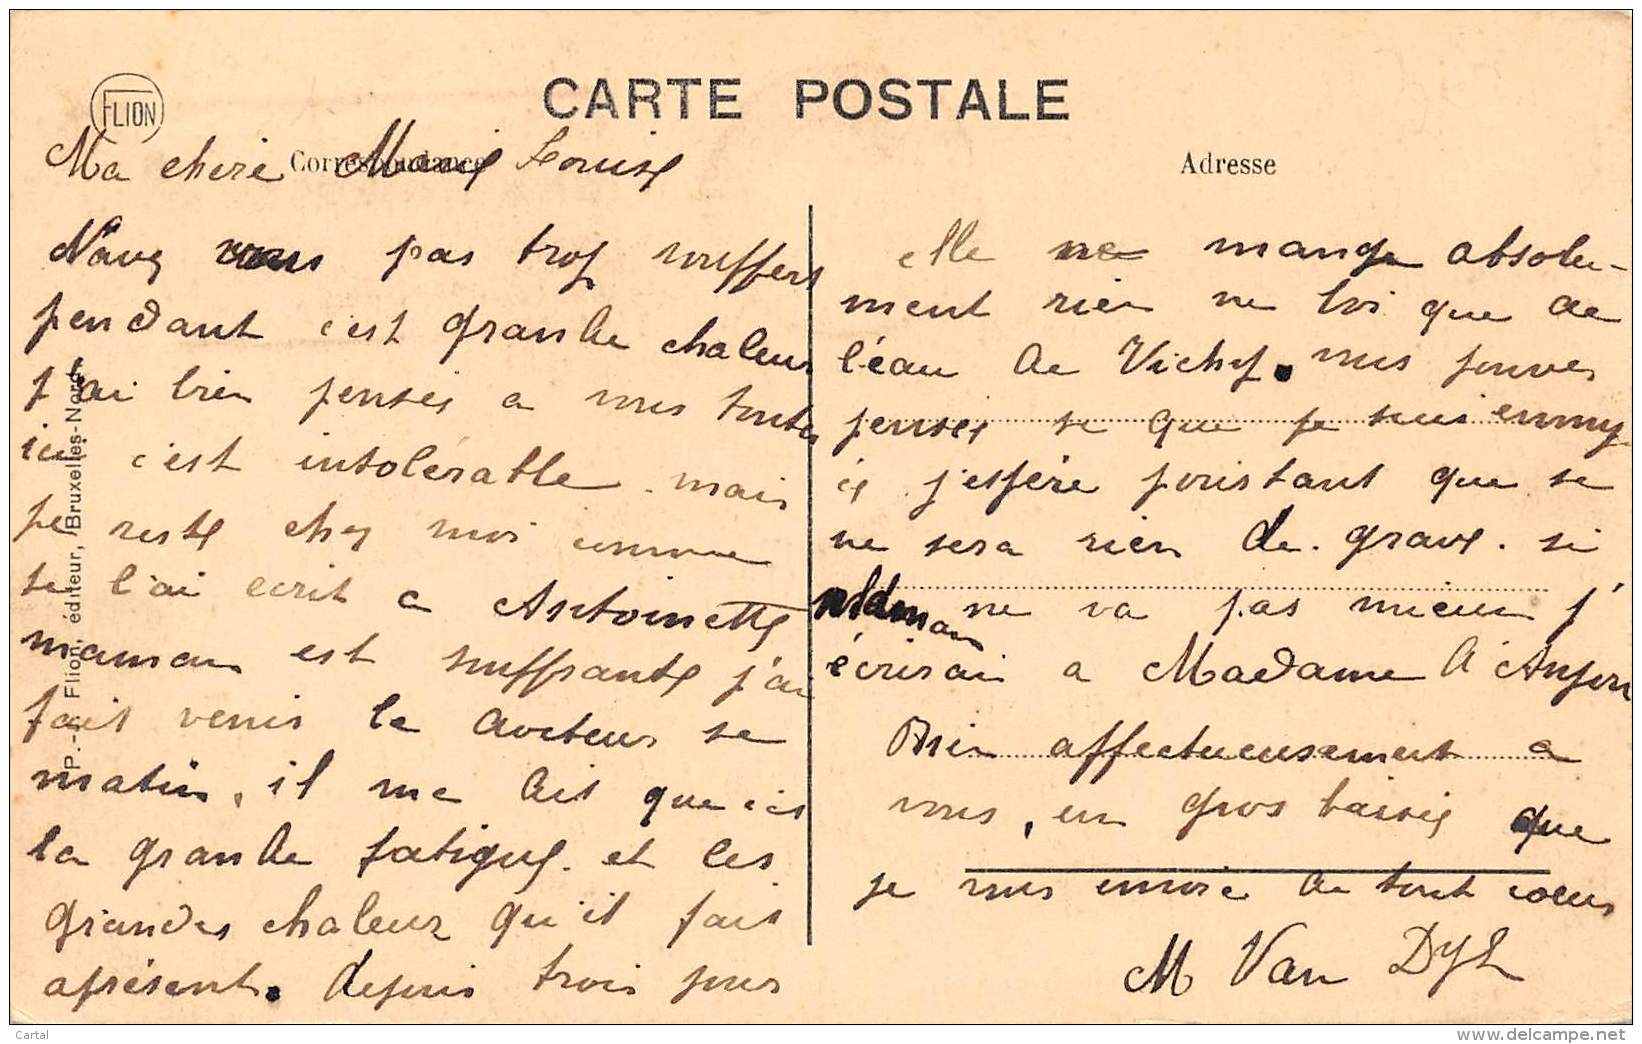 FLION
CARTE POSTALE
Correspondance
Adresse
Ma cheré Marie Louise
N'avez vous pas trop souffers
pendant c'est grande chaleur
j'ai bien penser a vous toutes
ici c'est intolérable mais
je reste chez moi comme
je l'ai ecrit a Antoinette
maman est souffrante j'ai
fait venir le docteur se
matin, il me dit que c'es
la grande fatigue et les
grandes chaleur qu'il fait
aprésent. depuis trois jour
elle ne mange absolu-
ment rien ne boi que de
l'éau de Vichy. vous pouvez
penser si que je suis ennuy
é j'espére pourtant que se
ne sera rien de grave. si
maman ne va pas mieux j'
écrirai a Madame d'Anjou
Bien affectueusement a
vous, un gros baiser que
je vous envoie de tout coeur
M Van Dyk
P.-. Flion, éditeur, Bruxelles-Nord.
Cartal
delcampe.net